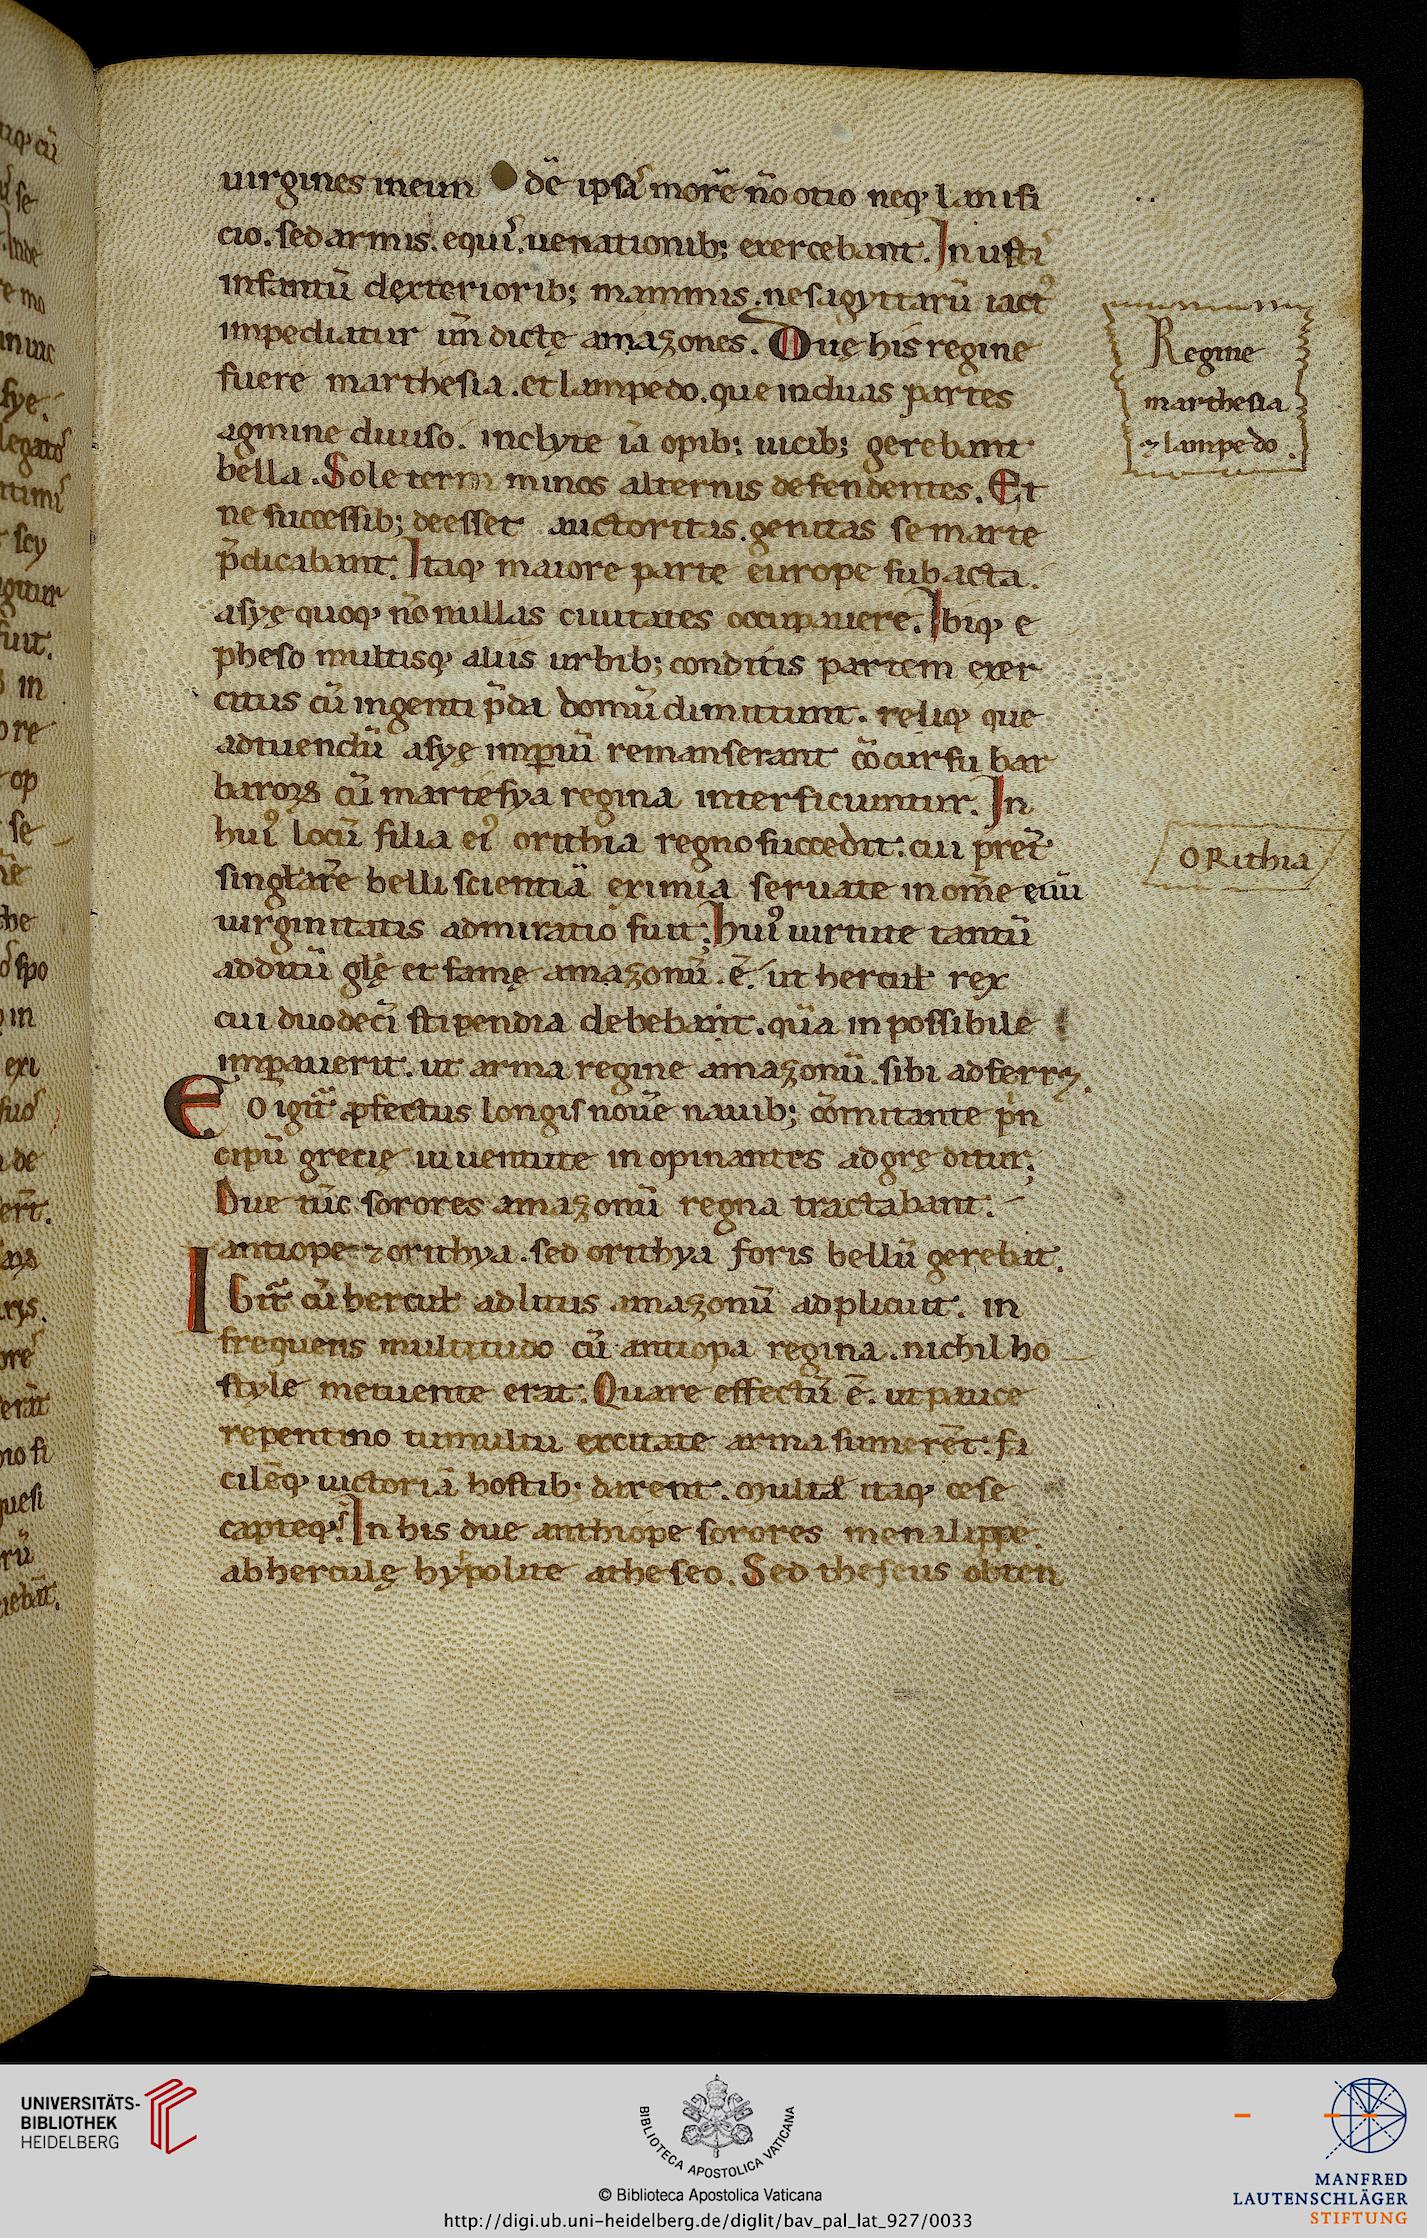 uirgines in eun dē ipsā morē nō otio neq; lanifi
cio. sed armis. equis. uenationib; exercebant. In ustis
infantū dexteriorib; mammis. ne sagyttarū iactꝰ
impediatur un̄ dictę amazones. Duę his regine
fuere marthesia. et lampedo. que in duas partes
agmine diuiso. inclyte iā opib; uicib; gerebant
bella. Sole termi minos alternis defendentes. Et
ne successib; deesset auctoritas. genitas se marte
p̄dicabant. Itaq; maiore parte europe subacta.
asyę quoq; nōnullas ciuitates occupauere. Ibiq; e
pheso multisq; aliis urbib; conditis partem exer
citus cū ingenti p̄da domū dimittunt. reliq; que
ad tuendū asyę imꝑiū remanserant cōcursu bar
baroꝝ cū martesya regina interficiuntur. In
huiꝰ locū filia eiꝰ orithia regno succedit. cui pret̄
singłarē belli scientiā eximia seruate in om̄e euū
uirginitatis admiratio fuit. Huiꝰ uirtute tantū
additū glę et famę amazonū. ē. ut hercuł rex
cui duodecī stipendia debebant. q̄a inpossibile
imꝑauerit. ut arma regine amazonū. sibi adferrꝫ.
Eo igit̄ ꝓfectus longis nouē nauib; cōmitante prin
cipū gretię iuuentute inopinantes adgrę ditur;
Due tūc sorores amazonū regna tractabant.
antiope ⁊ orithya. sed orithya foris bellū gerebat.
Igit̄ cū hercuł ad litus amazonū adplicuit. in
frequens multitudo cū antiopa regina. nichil ho
style metuente erat. Quare effectū ē. ut pauce
repentino tumultu excitate arma sumerēt. fa
cilēq; uictoriā hostib; darent. multę itaq; cese
capteq;. In his due anthiope sorores menalippe.
ab herculę hypolite a theseo. Sed theseus obten
Regine
marthesia
⁊ lampedo.
ORithia
UNIVERSITÄTS-
BIBLIOTHEK
HEIDELBERG
BIBLIOTECA APOSTOLICA VATICANA
© Biblioteca Apostolica Vaticana
http://digi.ub.uni-heidelberg.de/diglit/bav_pal_lat_927/0033
MANFRED
LAUTENSCHLÄGER
STIFTUNG